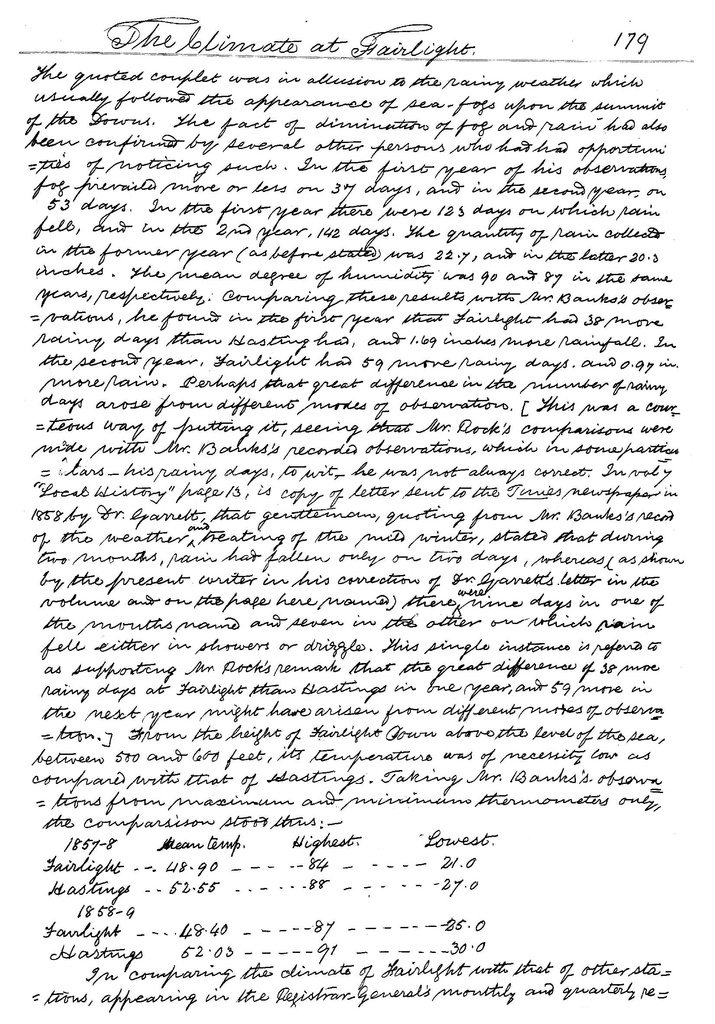 The Climate at Fairlight. 179
The quoted couplet was in allusion to the rainy weather which
usually followed the appearance of sea-fogs upon the summit
of the Downs. The fact of diminution of fog and rain had also
been confirmed by several other persons who had had opportuni
=ties of noticing such. In the first year of his observations,
fog prevailed more or less on 37 days, and in the second year, on
53 days. In the first year there were 123 days on which rain
fell, and in the 2nd year, 142 days. The quantity of rain collected
in the former year (as before stated) was 22.7, and in the latter 20.3
inches. The mean degree of humidity was 90 and 87 in the same
years, respectively. Comparing these results with Mr. Banks's obser=
=vations, he found in the first year that Fairlight had 38 more
rainy days than Hasting had, and 1.69 inches more rainfall. In
the second year, Fairlight had 59 more rainy days. and 0.97 in.
more rain. Perhaps that great difference in the number of rainy
days arose from different modes of observation. [This was a cour=
=teous way of putting it, seeing that Mr. Rock's comparisons were
made with Mr. Banks's recorded observations, which in some particu
=lars – his rainy days, to wit – he was not always correct. In vol y
"Local History" page 13, is copy of letter sent to the Times newspaper in
1858 by Dr. Garrett, that gentleman, quoting from Mr. Banks's record
of the weather, and treating of the mild winter, stated that during
two months, rain had fallen only on two days, whereas (as shown
by the present writer in his correction of Dr. Garrett's letter in the
volume and on the page here named) there were nine days in one of
the months named and seven in the other on which rain
fell either in showers or drizzle. This single instance is referred to
as supporting Mr. Rock's remark that the great difference of 38 more
rainy days at Fairlight than Hastings in one year, and 59 more in
the next year might have arisen from different modes of observa
=tion.] From the height of Fairlight Down above the level of the sea,
between 500 and 600 feet, its temperature was of necessity low as
compared with that of Hastings. Taking Mr. Banks's observa
=tions from maximum and minimum thermometers only,
the comparsison stood thus:–
1857-8 Mean temp. Highest. Lowest.
Fairlight --- 48.90 - - - - --84 - - - - - - 21.0
Hastings -- 52.55 - - - --88 - - - - - --27.0
1858-9
Fairlight - - - -48.40 - - - - --87 - - - - - -25.0
Hastings 52.03 - - - - - 91 - - - - - -30.0
In comparing the climate of Fairlight with that of other sta=
=tions, appearing in the Registrar-General's monthly and quarterly re=